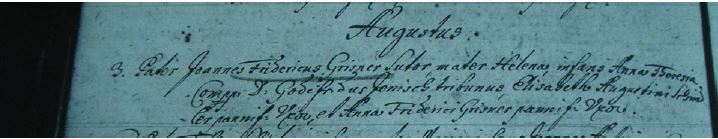 Augustus.
3. Pater Joannes Fridericus Grisner Sutor mater Helena, infans Anna Theresia
Comp: D. Godefridus Jenisch tribunus, Elisabetha Augustini
ler pannif: Uxor, et Anna Friderici Grisner pannif: Uxor.